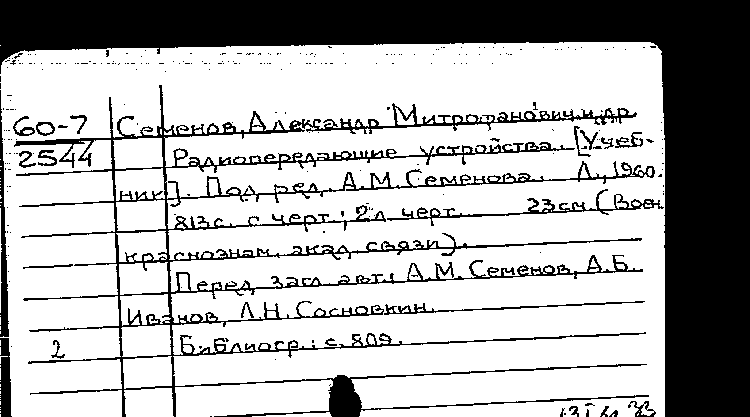 60-7 Семенов, Александр Митрофанович и др.
2544 Радиопередающие устройства. [Учеб-
ник]. Под ред. А.М. Семенова. Л., 1960.
813с. с черт.; 2л. черт. 23см (Воен.
краснознам. акад. связи).
Перед загл. авт.: А.М. Семенов, А.Б.
Иванов, Л.Н. Сосновкин.
2 Библиогр.: с. 809.